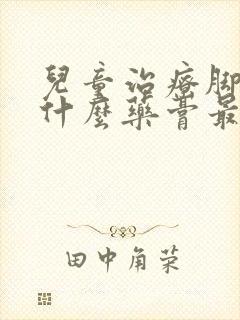 兒童治療脚
什麼藥膏最
田中角菜